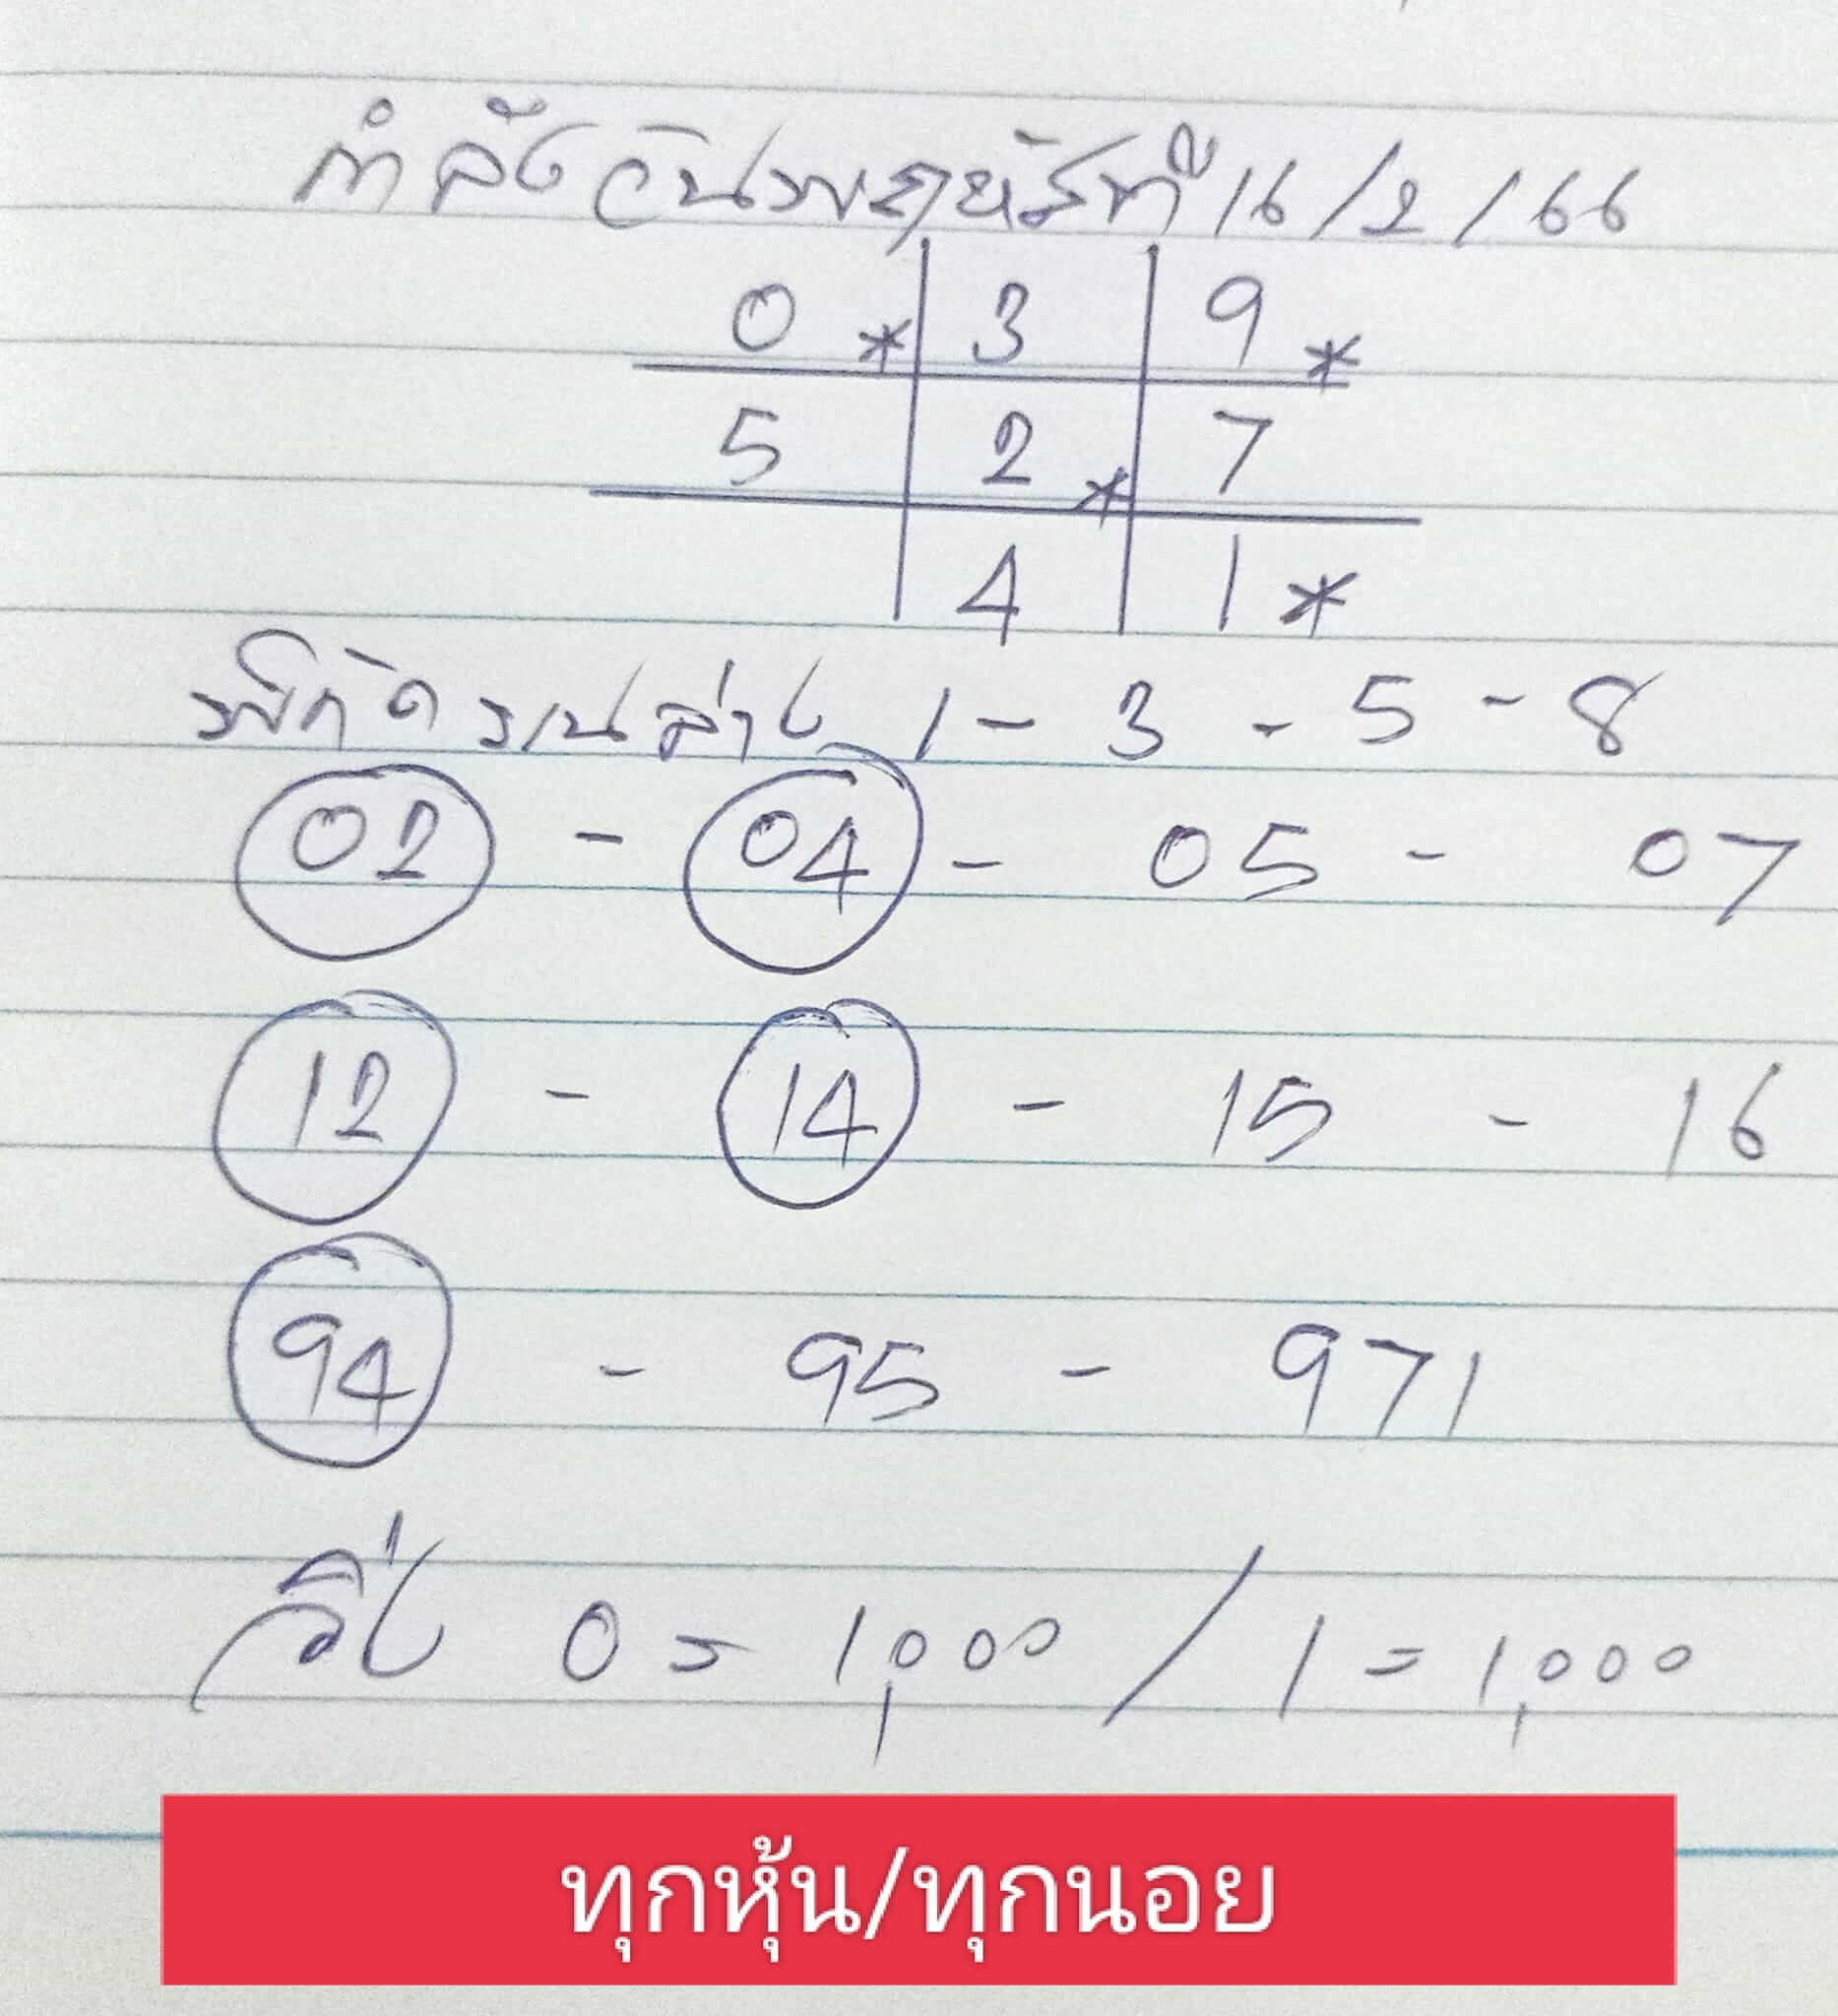 กำลังวันพฤหัสที่ 16/2/66
0 * 3 9 *
5 2 * 7
4 1 *
พิกัดบนล่าง 1 - 3 - 5 - 8
02 - 04 - 05 - 07
12 - 14 - 15 - 16
94 - 95 - 971
วิ่ง 0 = 1,000 / 1 = 1,000
ทุกหุ้น/ทุกนอย